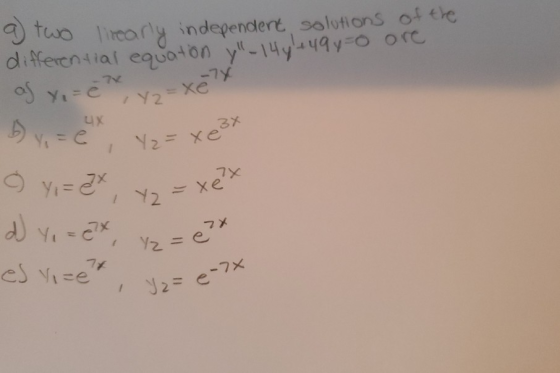 9) two linearly independent solutions of the
differential equation y'' - 14y' + 49y = 0 are
a) y₁ = e⁻⁷ˣ, y₂ = xe⁻⁷ˣ
b) y₁ = e⁴ˣ, y₂ = xe³ˣ
c) y₁ = e⁷ˣ, y₂ = xe⁷ˣ
d) y₁ = e⁷ˣ, y₂ = e⁷ˣ
e) y₁ = e⁷ˣ, y₂ = e⁻⁷ˣ